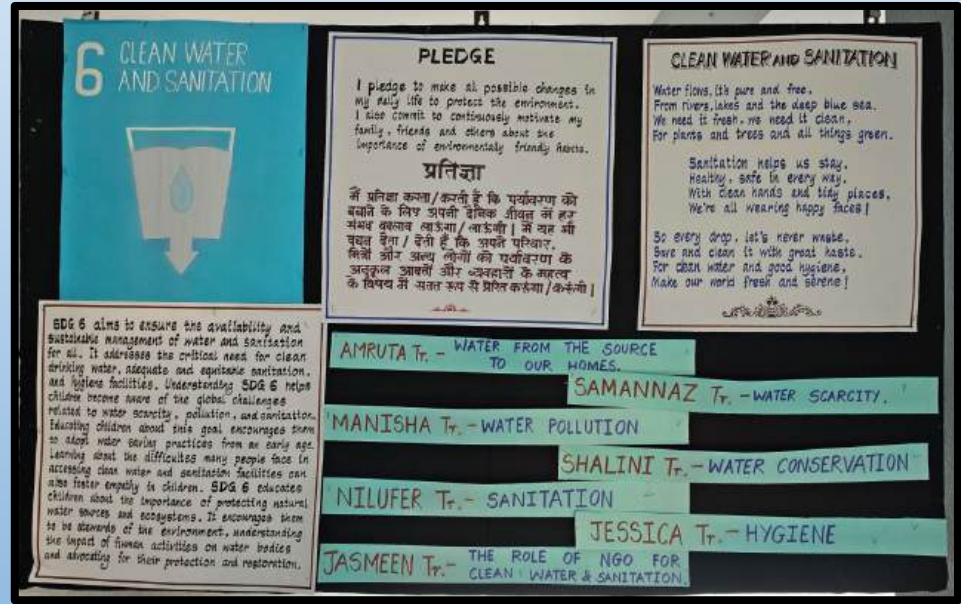 6 CLEAN WATER
AND SANITATION
PLEDGE
I pledge to make all possible changes in
my daily life to protect the environment.
I also commit to continuously motivate my
family, friends and others about the
importance of environmentally friendly habits.
प्रतिज्ञा
में प्रतिज्ञा करता/करती हूँ कि पर्यावरण को
बचाने के लिए अपनी दैनिक जीवन में हर
संभव बदलाव लाऊंगा/लाऊंगी | में यह भी
वचन देता / देती हूँ कि अपने परिवार,
मित्रों और अन्य लोगों को पर्यावरण के
अनुकूल आदतों और व्यवहारों के महत्व
के विषय में सतत रूप से प्रेरित करूंगा/करूंगी |
CLEAN WATER AND SANITATION
Water flows, it's pure and free,
From rivers, lakes and the deep blue sea.
We need it fresh, we need it clean,
For plants and trees and all things green.
Sanitation helps us stay,
Healthy, safe in every way.
With clean hands and tidy places,
We're all wearing happy faces!
So every drop, let's never waste,
Save and clean it with great haste.
For clean water and good hygiene,
Make our world fresh and serene!
SDG 6 aims to ensure the availability and
sustainable management of water and sanitation
for all. It addresses the critical need for clean
drinking water, adequate and equitable sanitation,
and hygiene facilities. Understanding SDG 6 helps
children become aware of the global challenges
related to water scarcity, pollution, and sanitation.
Educating children about this goal encourages them
to adopt water saving practices from an early age.
Learning about the difficulties many people face in
accessing clean water and sanitation facilities can
also foster empathy in children. SDG 6 educates
children about the importance of protecting natural
water sources and ecosystems. It encourages them
to be stewards of the environment, understanding
the impact of human activities on water bodies
and advocating for their protection and restoration.
AMRUTA Tr. - WATER FROM THE SOURCE
TO OUR HOMES.
SAMANNAZ Tr. - WATER SCARCITY.
MANISHA Tr. - WATER POLLUTION
SHALINI Tr. - WATER CONSERVATION
NILUFER Tr. - SANITATION
JESSICA Tr. - HYGIENE
JASMEEN Tr. - THE ROLE OF NGO FOR
CLEAN WATER & SANITATION.